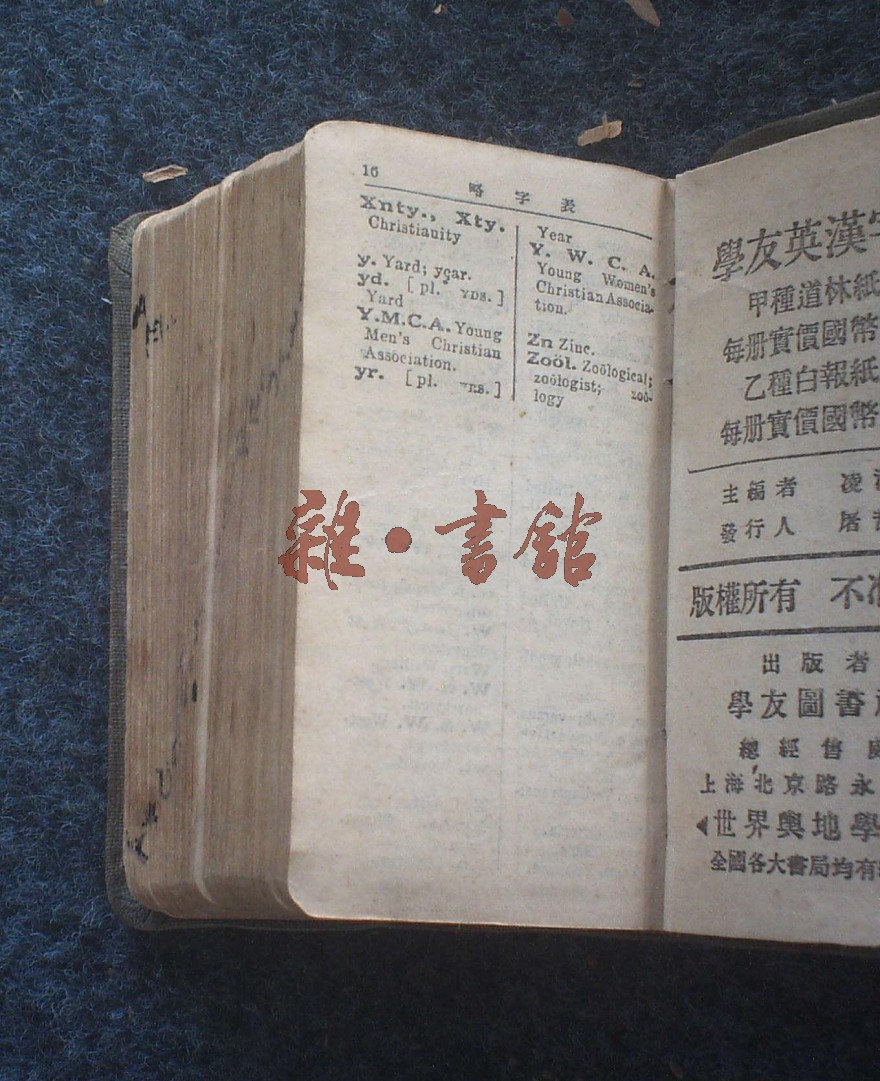 16
略字表
Xnty., Xty.
Christianity
y. Yard; year.
yd. [pl. YDS.]
Yard
Y.M.C.A. Young
Men's Christian
Association.
yr. [pl. YRS.]
Year
Y. W. C. A.
Young Women's
Christian Associa-
tion.
Zn Zinc.
Zoöl. Zoölogical;
zoölogist; zoö-
logy
學友英漢字
甲種道林紙
每册實價國幣
乙種白報紙
每册實價國幣
主編者 凌
發行人 屠
版權所有 不准
出版者
學友圖書
總經售
上海北京路永
世界輿地學
全國各大書局均有
雜·書館